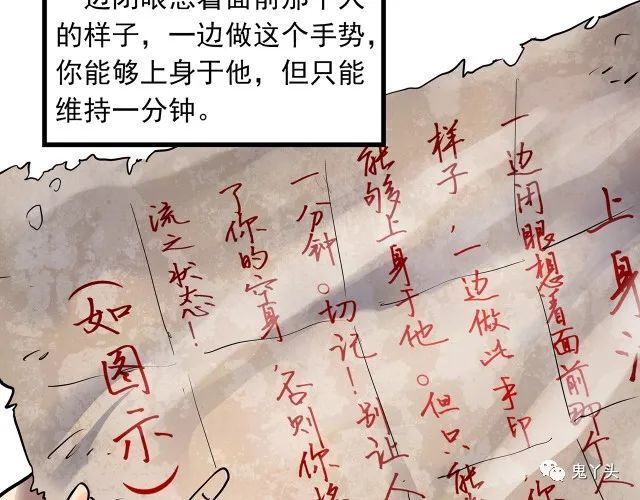 一边闭眼想着面前那个人
的样子，一边做这个手势，
你能够上身于他，但只能
维持一分钟。
上身法
一边闭眼想着面前那个
样子，一边做此手印
能够上身于他。但只能
一分钟。切记！别让人
了你的空身，否则你将
流之状态！
（如图示）
鬼丫头